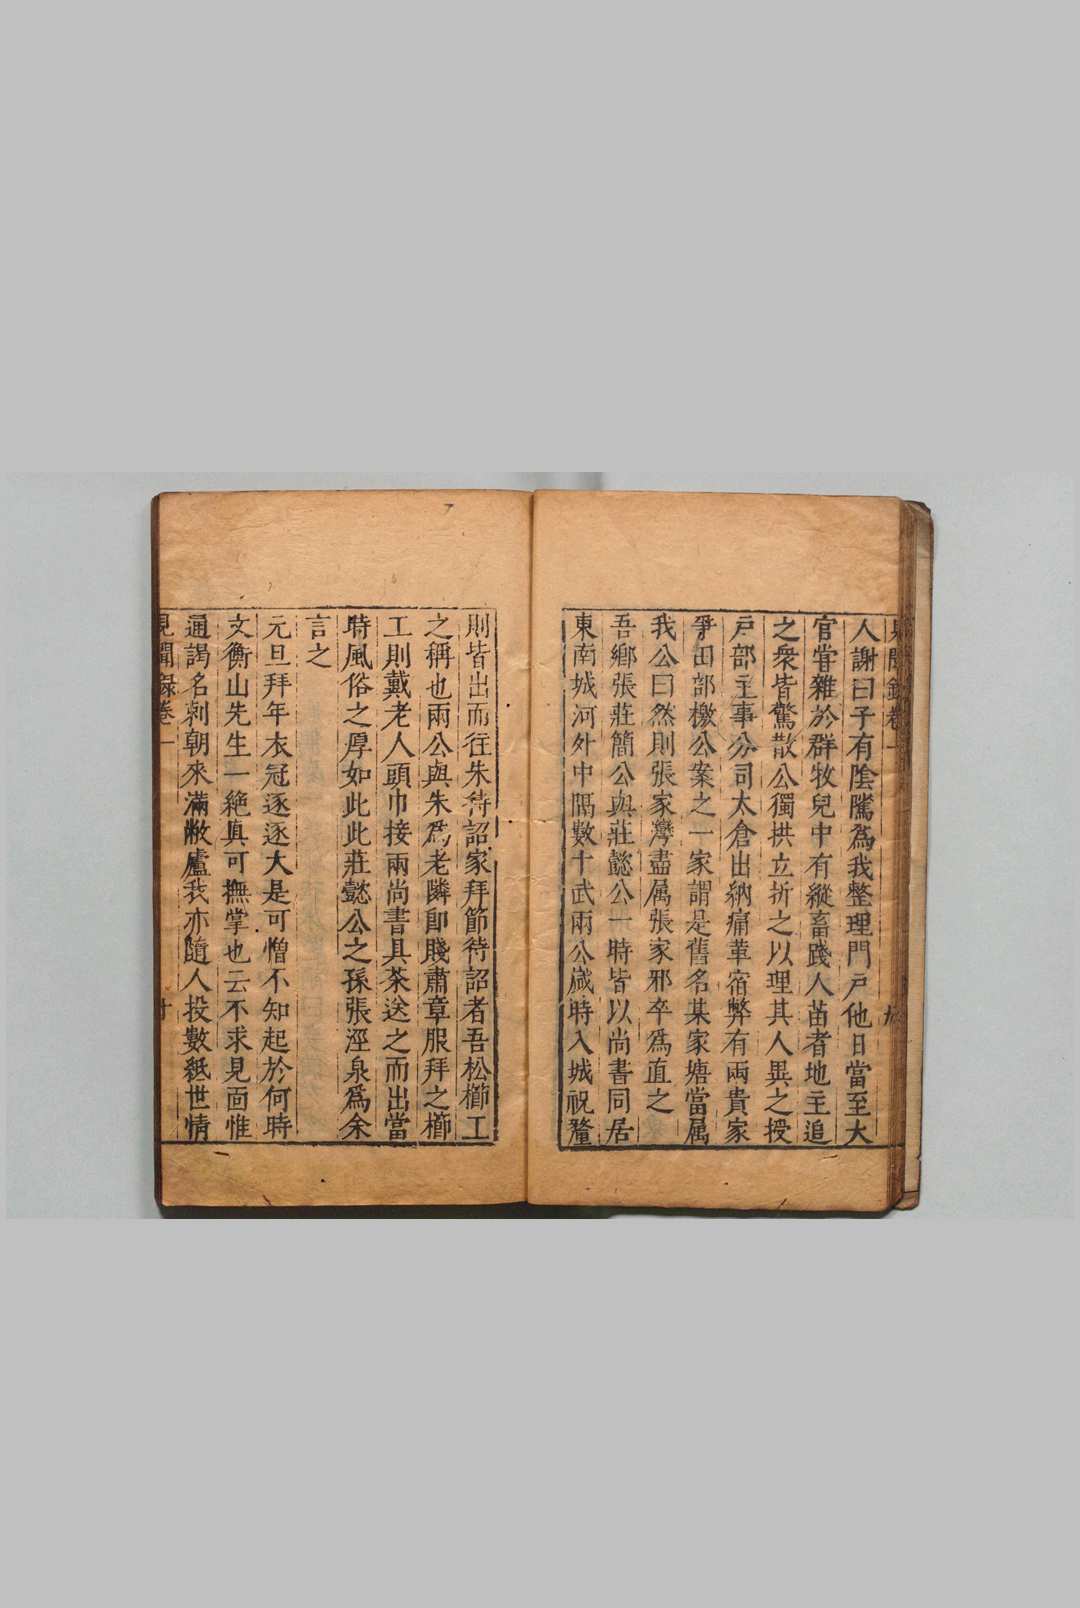 人謝曰子有陰騭爲我整理門戶他日當至大
官甞雜於群牧兒中有縱畜踐人苗者地主追
之衆皆驚散公獨拱立折之以理其人異之授
戸部主事分司太倉出納痛革宿弊有兩貴家
爭田部檄公案之一家謂是舊名某家塘當属
我公曰然則張家灣盡属張家邪卒爲直之
吾鄉張莊簡公與莊懿公一時皆以尚書同居
東南城河外中隔數十武兩公歲時入城祝釐
則皆出而往朱待詔家拜節待詔者吾松櫛工
之稱也兩公與朱爲老隣即賤肅章服拜之櫛
工則戴老人頭巾接兩尚書具茶送之而出當
時風俗之厚如此此莊懿公之孫張涇泉爲余
言之
元旦拜年衣冠逐逐大是可憎不知起於何時
文衡山先生一絶真可撫掌也云不求見面惟
通謁名刺朝來滿敝廬我亦隨人投數紙世情
見聞錄卷一